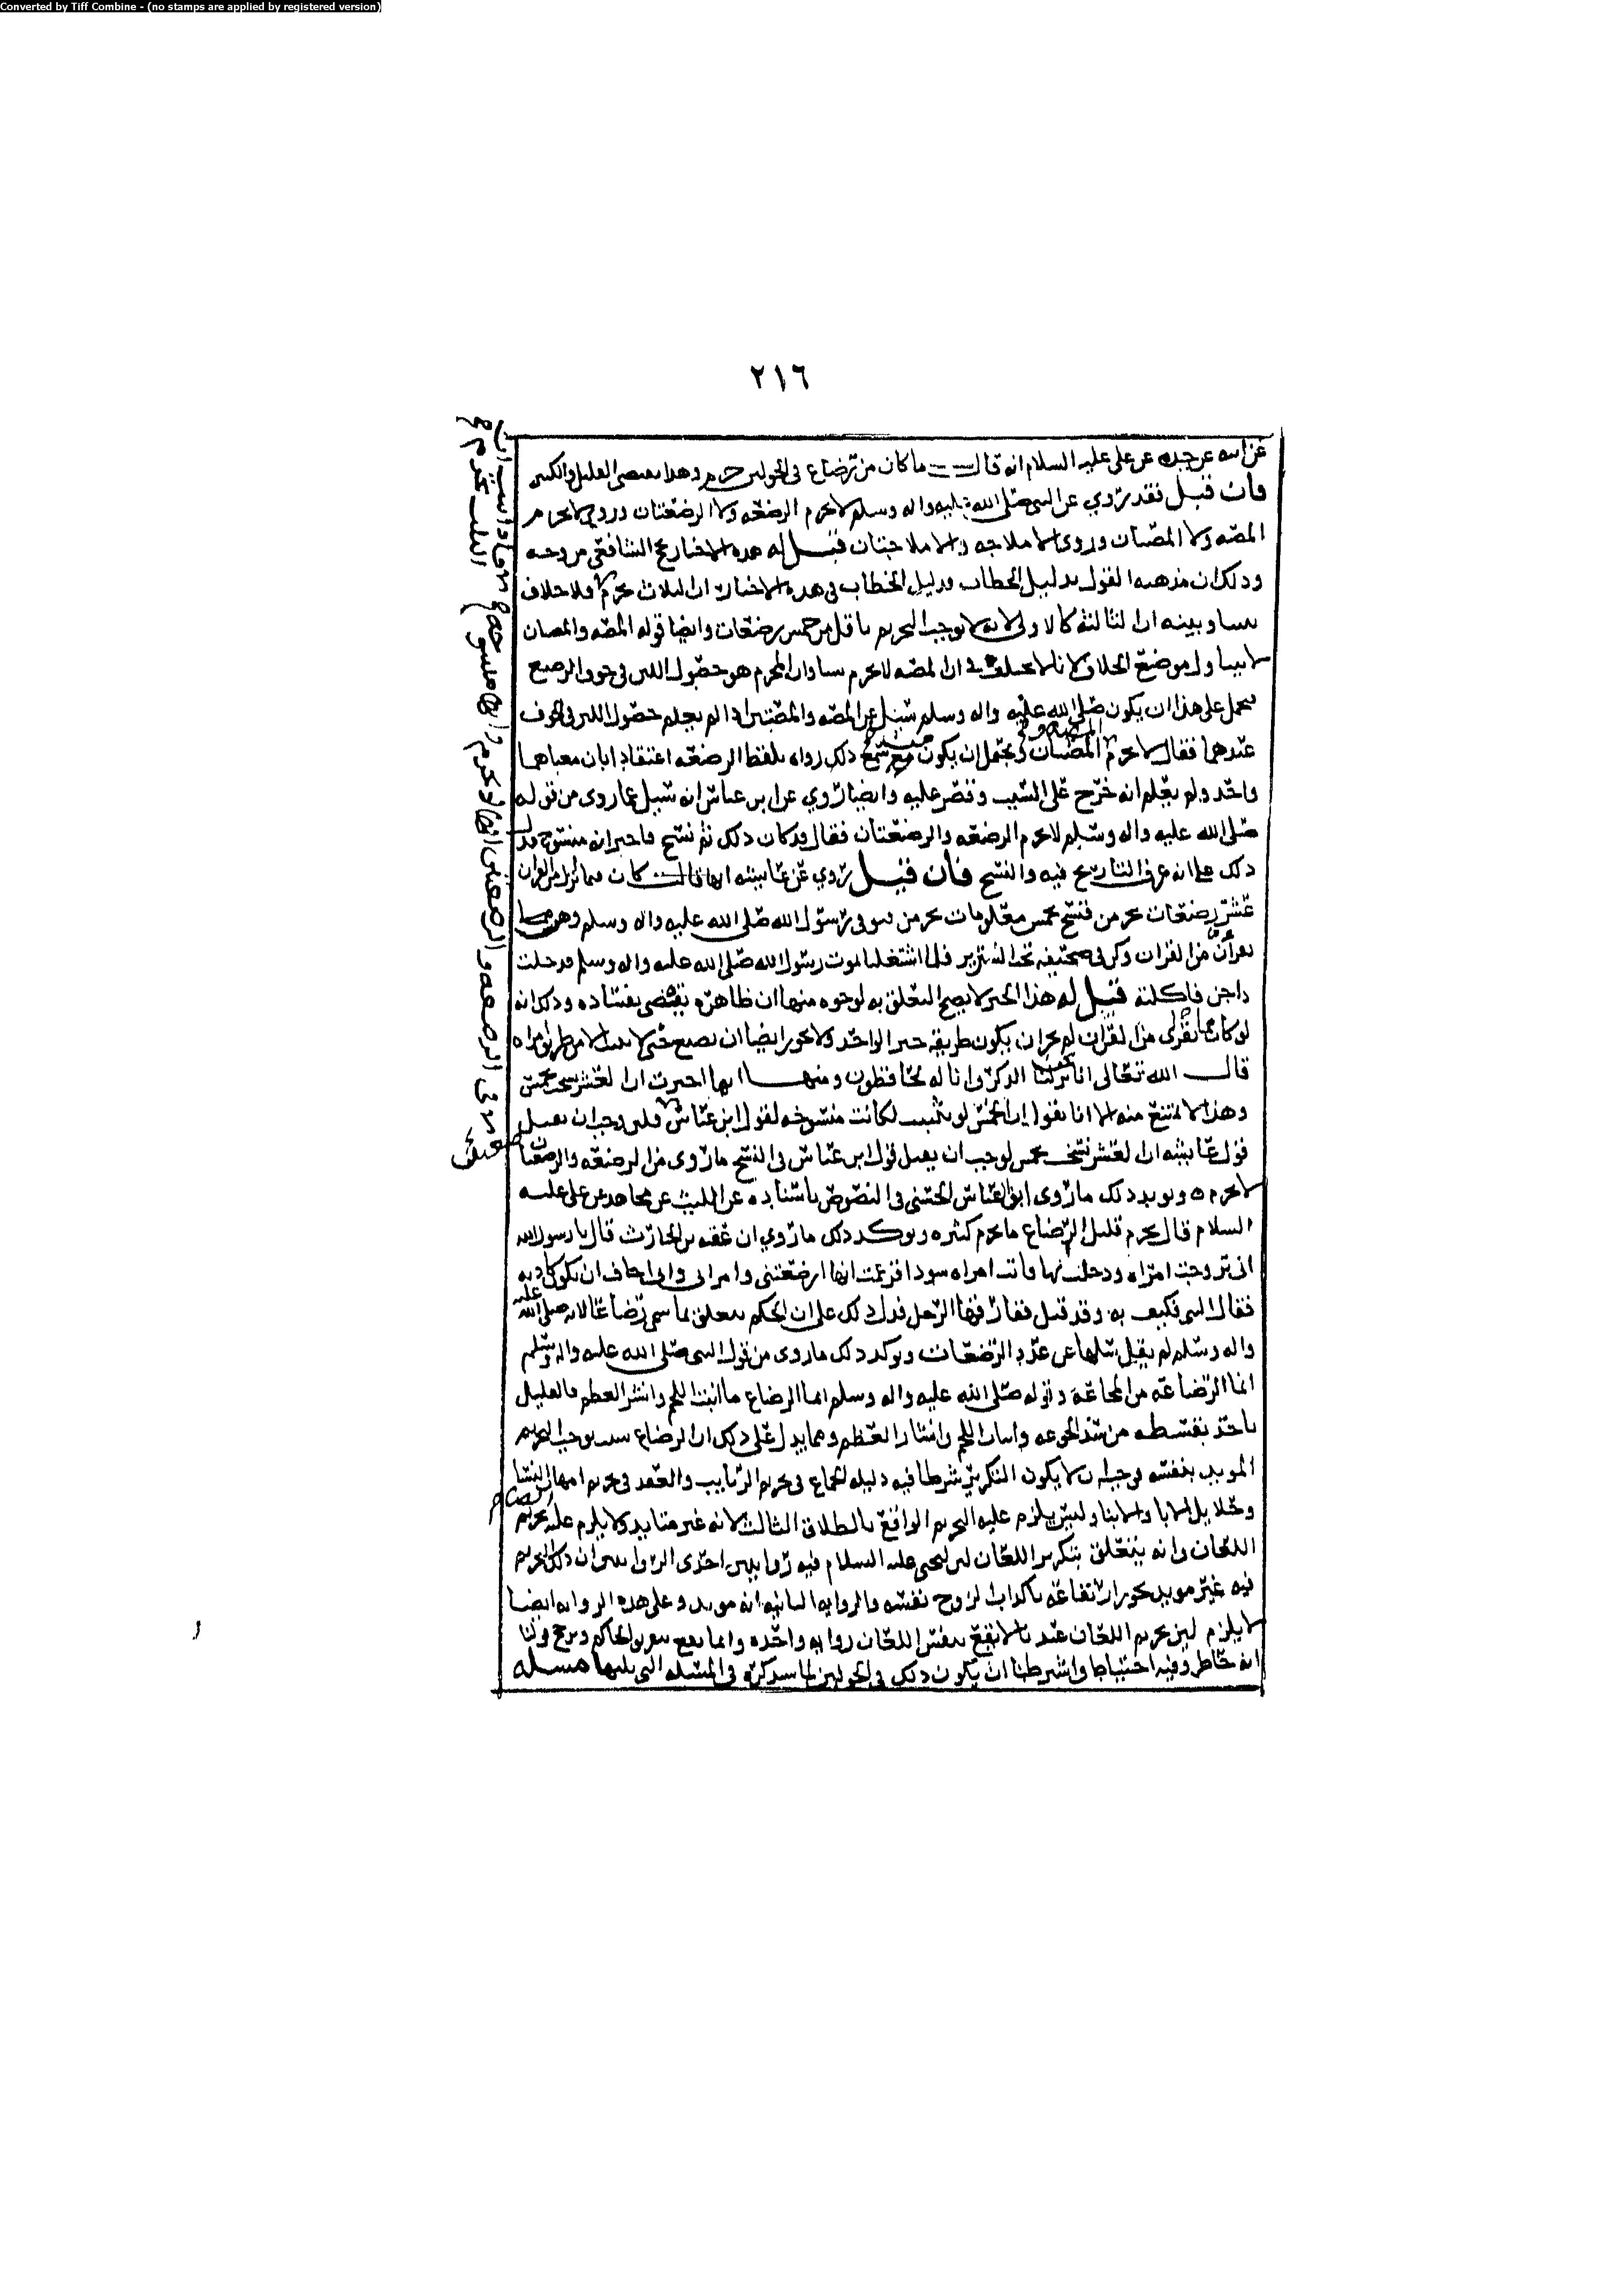 Converted by Tiff Combine - (no stamps are applied by registered version)
٢١٦
عن ابيه عن جده عن علي عليه السلام انه قال ما كان من رضاع في الحولين حرم وهذا يقتضي القليل والكثير
فان قيل فقد روي عن النبي صلى الله عليه واله وسلم لا تحرم الرضعه ولا الرضعتان وروي لا تحرم
المصه ولا المصتان وروي الاملاجه والاملاجتان قيل له هذه الاخبار الشافعي من وجه
وذلك ان مذهبه القول بدليل الخطاب ودليل الخطاب في هذه الاخبار ان الثلاث تحرم ولا خلاف
بيننا وبينه ان الثالثه كالاولى لانه لا يوجب التحريم باقل من خمس رضعات وايضا قوله المصه والمصتان
لا يتناول موضع الخلاف لانا لا نختلف في ان المصه لا تحرم المحرم هو حصول اللبن في جوف الرضيع
يحمل على هذا ان يكون صلى الله عليه واله وسلم سئل عن المصه والمصتين اذا لم يعلم حصول اللبن في الجوف
عندهما فقال لا تحرم المصه و المصتان ويحتمل ان يكون من سمع ذلك رواه بلفظ الرضعه اعتقادا بان معناهما
واحد ولم يعلم انه خرج على السبب وقصر عليه وايضا روي عن ابن عباس انه سئل عما روى من قوله
صلى الله عليه واله وسلم لا تحرم الرضعه والرضعتان فقال قد كان ذلك ثم نسخ فاخبر انه منسوخ فدل
ذلك على انه عرف التاريخ فيه والنسخ فان قيل روي عن عائشه انها قالت كان فيما نزل من القران
عشر رضعات يحرمن فنسخ بخمس معلومات يحرمن فتوفي رسول الله صلى الله عليه واله وسلم وهن مما
يقران من القران وكن في صحيفه تحت السرير فلما اشتغلنا بموت رسول الله صلى الله عليه واله وسلم دخلت
داجن فاكلته قيل له هذا الخبر لا يصح التعلق به لوجوه منها ان ظاهره يقتضي بفساده وذلك انه
لو كان مما يقرى من القران لم يجز ان يكون طريقه خبر الواحد ولا يجوز ايضا ان يضيع حتى لا الا من طريق امراه
قال الله تعالى انا نحن نزلنا الذكر وانا له لحافظون ومنها انها اخبرت ان العشر نسخت بخمس
وهذا لا يمتنع منه الا انا نقول ان الخمس لو ثبتت لكانت منسوخه لقول ابن عباس ولئن وجب ان يقبل
قول عائشه ان العشر نسخت بخمس لوجب ان يقبل قول ابن عباس في النسخ ما روى من الرضعه والرضعتان
لا تحرم ويويد ذلك ما روى ابو العباس الحسني في النصوص باسناده عن الليث عن مجاهد عن علي عليه
السلام قال يحرم قليل الرضاع ما يحرم كثيره ويوكد ذلك ما روي ان عقبه بن الحارث قال يا رسول الله
اني تزوجت امراه ودخلت بها فاتت امراه سودا فزعمت انها ارضعتني وامراتي واني اخاف ان تكون كاذبه
فقال النبي فكيف به وقد قيل ففارقها الرجل فدل ذلك على ان الحكم يتعلق بما سمي رضاعا لانه صلى الله عليه
واله وسلم لم يقبل سلها عن عدد الرضعات ويوكد ذلك ما روى من قول النبي صلى الله عليه واله وسلم
انما الرضاعه من المجاعه وقوله صلى الله عليه واله وسلم انما الرضاع ما انبت اللحم وانشز العظم فالقليل
ياخذ بقسطه من سد الجوعه وانبات اللحم وانشاز العظم ومما يدل على ذلك ان الرضاع سبب يوجب التحريم
المويد بنفسه فوجب ان لا يكون التكرير شرطا فيه دليله الجماع في تحريم الربايب والعقد في تحريم امهات النسا
وحلايل الابا والابنا وليس يلزم عليه التحريم الواقع بالطلاق الثالث لانه غير متابد ولا يلزم عليه تحريم
اللعان وانه يتعلق بتكرير اللعان لان ليحيى عليه السلام فيه روايتين احدى الروايتين ان ذلك التحريم
فيه غير مويد يجوز ارتفاعه باكذاب الزوج نفسه والروايه الثانيه انه مويد وعلى هذه الروايه ايضا
لا يلزم لان تحريم اللعان عندنا لا يقع بنفس اللعان روايه واحده وانما يقع بتفريق الحاكم
انه حاظر وفيه احتياط واشترطنا ان يكون ذلك في الحولين لما سنذكره في المسله التي يليها مسله